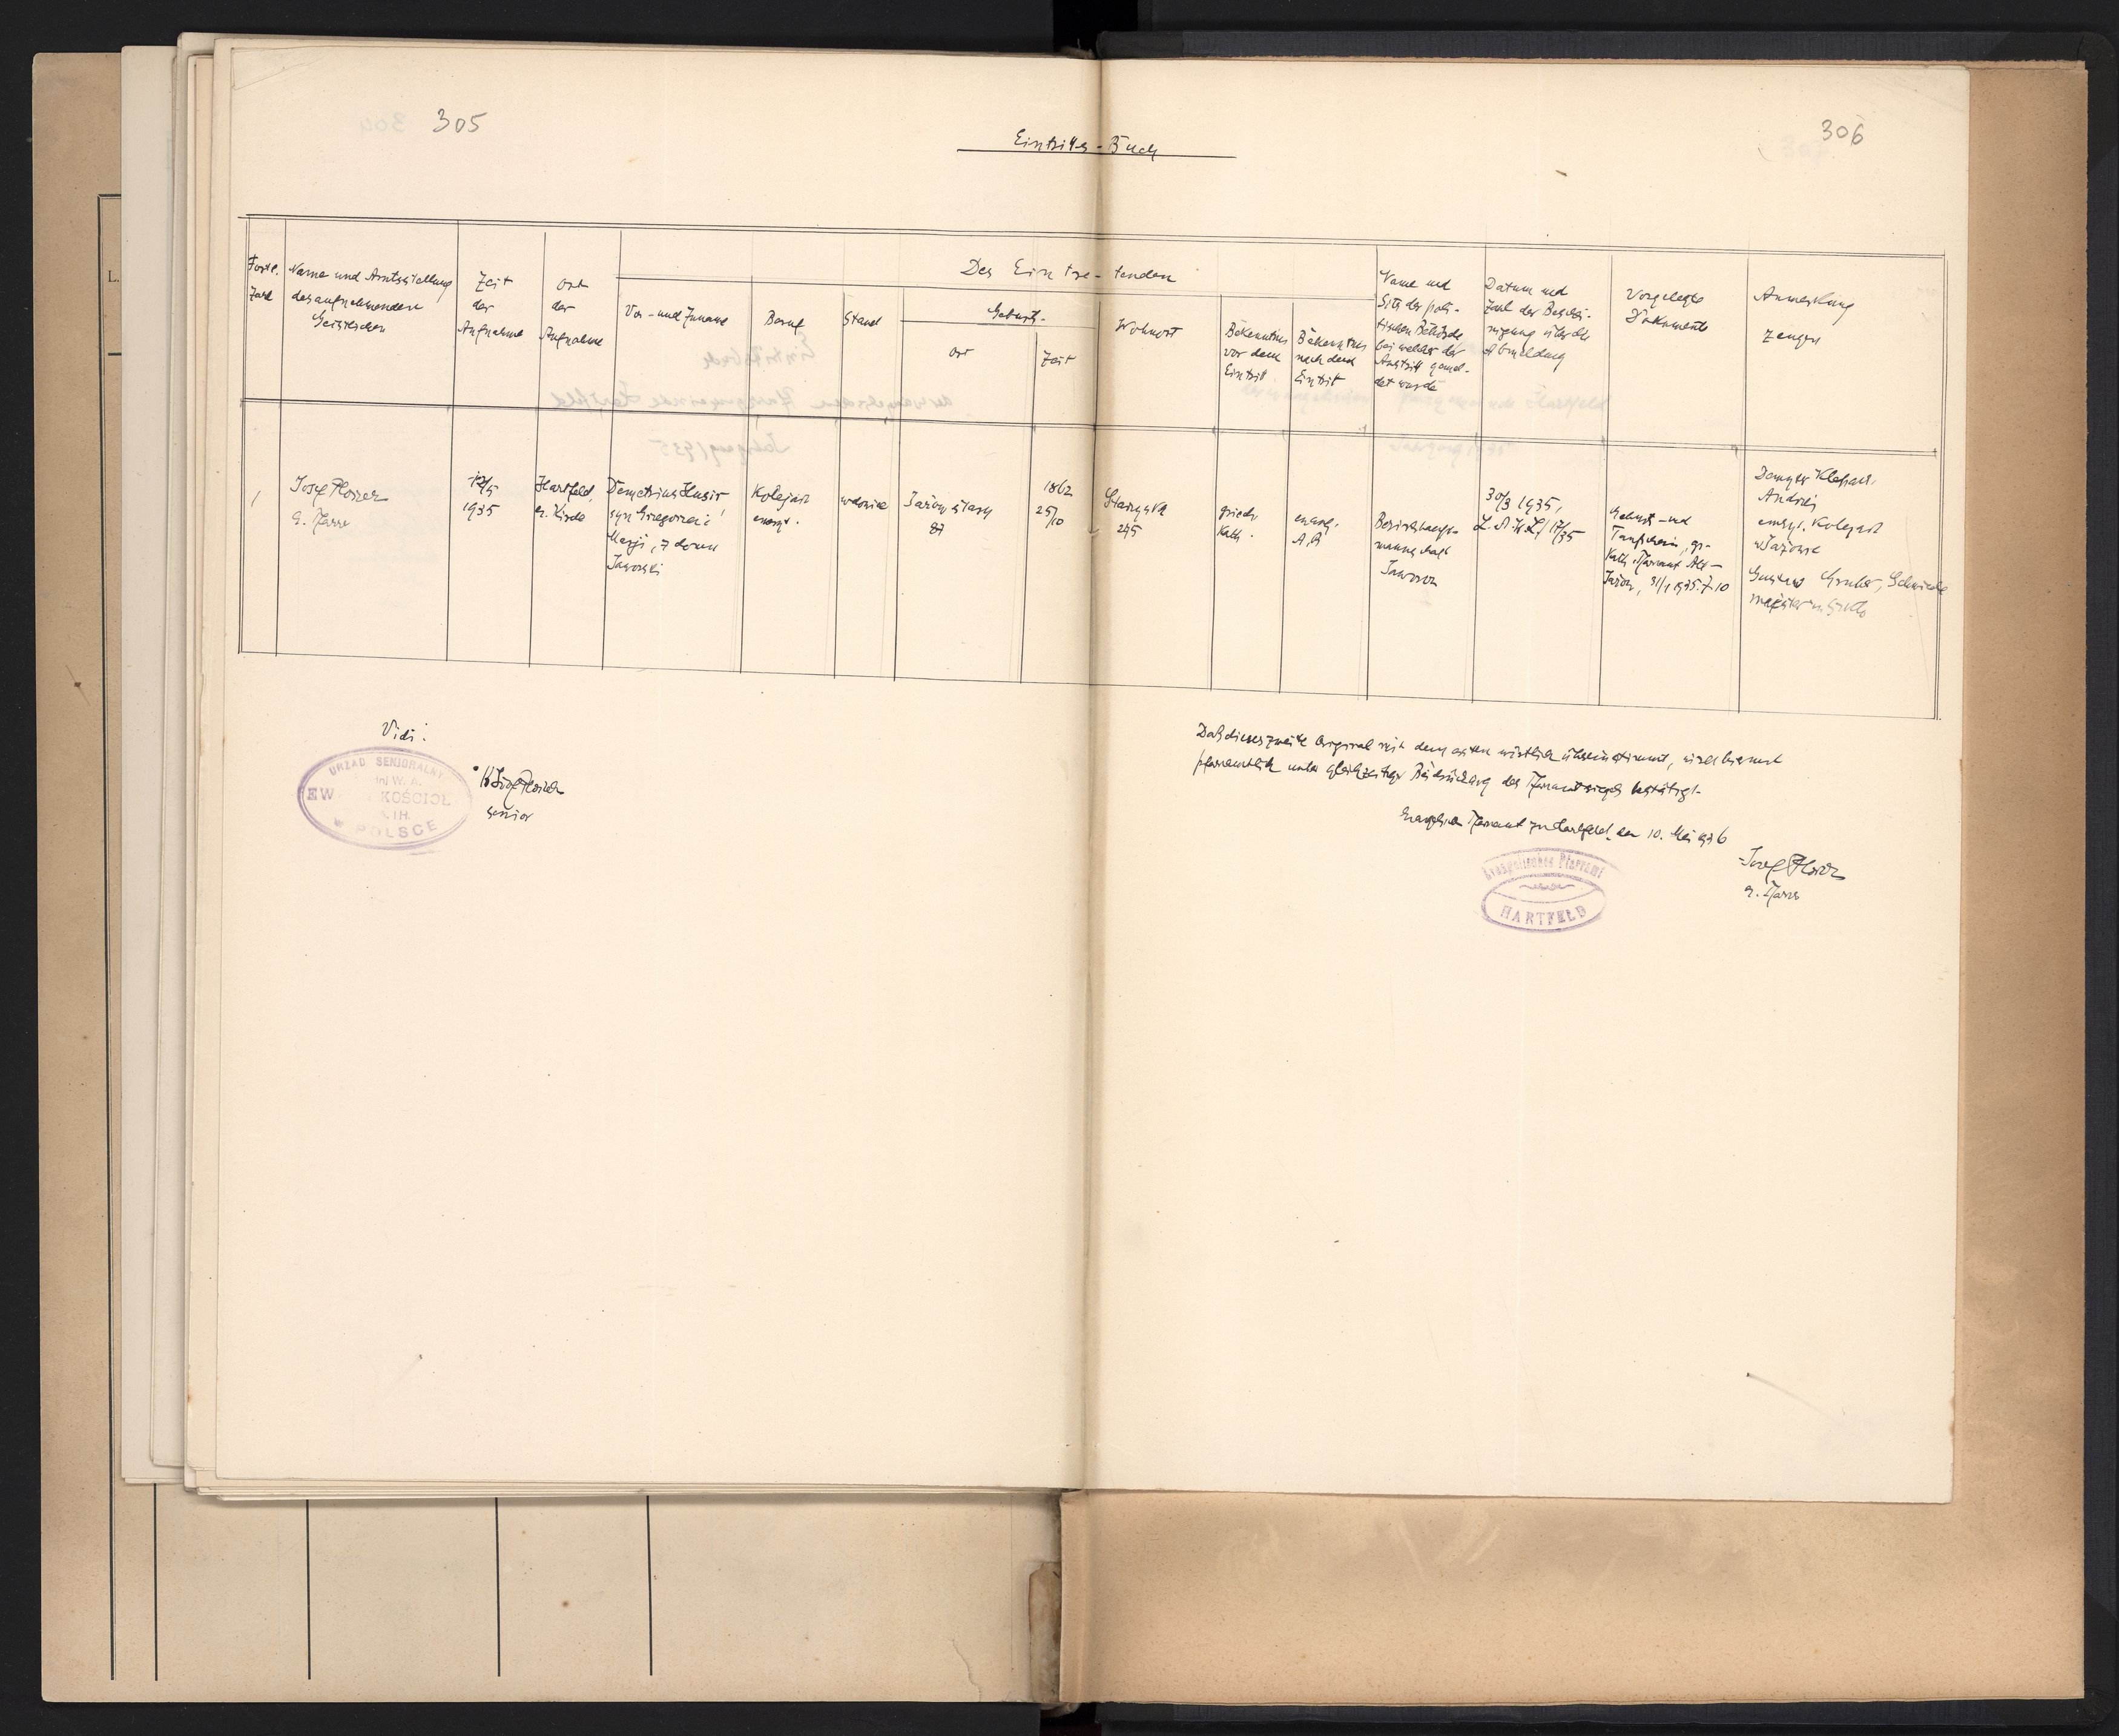 305
306
Eintritts-Buch
Fortl. Zahl
Name und Amtsstellung
des aufnehmenden
Geistlichen
Zeit
der
Aufnahme
Ort
der
Aufnahme
Des Eintre-tenden
Vor- und Zuname
Beruf
Stand
Geburts-
Ort
Zeit
Wohnort
Bekenntnis
vor dem
Eintritt
Bekenntnis
nach dem
Eintritt
Name und
Sitz der poli-
tischen Behörde
bei welcher der
Austritt gemel-
det wurde
Datum und
Zahl der Beschei-
nigung über die
Abmeldung
Vorgelegte
Dokumente
Anmerkung
Zeugen
1
Josef
e. Pfarrer
12/5
1935
Hartfeld,
e. Kirche
Demetrius Husir,
syn Gregorza i
Marji, z domu
Jaworski
Kolejarz
emeryt.
wdowiec
Jażów stary
87
1862
25/10
Starzyska
245
griech.
kath.
evang.
A.B.
Bezirkshaupt-
mannschaft
Jaworow
30/3 1935,
17/35
Geburts- und
Taufschein, gr.-
kath. Pfarramt Alt-
Jażów, 31/1 1935. 7-10
Andrej
emeryt. Kolejarz
w Jażowie
Gustaw Gruber, Schmiede-
meister in
Vidi:
URZĄD SENJORALNY
W. A.
EW KOŚCIOŁ
IH.
W POLSCE
senior
Daß dieses zweite Original mit dem ersten wörtlich übereinstimmt, wird hiermit
pfarramtlich unter gleichzeitiger Beidrückung des Pfarramtsiegels bestätigt.
Evangelisches Pfarramt zu Hartfeld, den 10. Mai 1936
Evangelisches Pfarramt
HARTFELD
Josef
e. Pfarrer